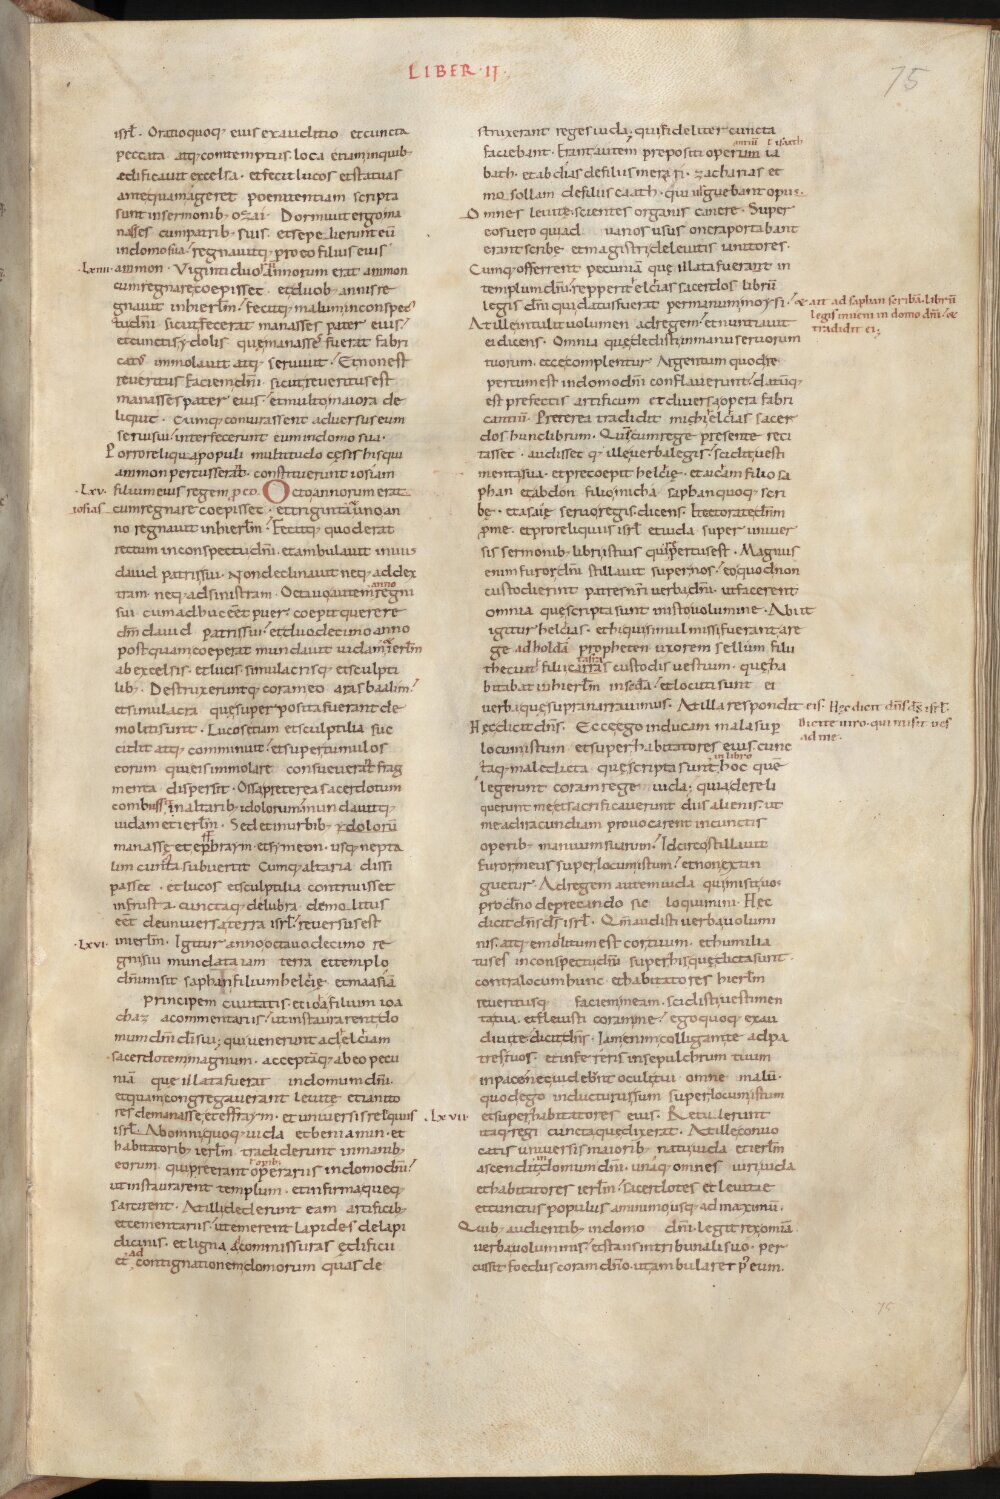 LIBER · II ·
75
isrł. Oratio quoq; eius exauditio et cuncta
peccata atq; contemptus. loca etiam in quib;
edificauit excelsa. et fecit lucos et statuas
antequam ageret poenitentiam scripta
sunt in sermonib; ozai. Dormiuit ergo ma
nasses cum patrib; suis. et sepelierunt eū
in domo sua. regnauitq; pro eo filius eius
· Lxiiii · ammon. Viginti duorū annorum erat ammon
cum regnare coepisset. et duob; annis re
gnauit in hierłm. fecitq; malum in conspec
tu dn̄i. sicut fecerat manasses pater eius.
et cunctis ydolis que manasse fuerat fabri
catus immolauit atq; seruiuit. Et non est
reueritus faciem dn̄i. sicut reueritus est
manasses pater eius. et multo maiora de
liquit. Cumq; coniurassent aduersus eum
serui sui interfecerunt eum in domo sua.
Porro reliqua populi multitudo cęsis his qui
ammon percusserat. constituerunt iosiam
· Lxv · filium eius regem p eo. Octo annorum erat
iosias cum regnare coepisset. et triginta uno an
no regnauit in hierłm. Fecitq; quod erat
rectum in conspectu dn̄i. et ambulauit in uiis
dauid patris sui. Non declinauit neq; ad dex
tram. neq; ad sinistram. Octauo autem anno regni
sui cum adhuc eēt puer. coepit querere
dm̄ dauid patris sui. et duodecimo anno
postquam coeperat mundauit iudam et ierłm
ab excelsis. et lucis. simulacrisq; et sculpti
lib;. Destruxeruntq; coram eo aras baalim.
et simulacra que superposita fuerant de
moliti sunt. Lucos etiam et sculptilia suc
cidit atq; comminuit. et super tumulos
eorum qui eis immolare consueuerāt frag
menta dispersit. Ossa preterea sacerdotum
combussit in altarib; idolorum. mundauitq;
iudam et ierłm. Sed et in urbib; ydolorū
manasse. et ephraym. et symeon. usq; nepta
lim cuncta subuertit Cumq; altaria dissi
passet. et lucos et sculptilia contriuisset
in frusta. cunctaq; delubra demolitus
eēt de uniuersa terra isrł. reuersus est
· Lxvi · in ierłm. Igitur anno octauo decimo re
gni sui mundata iam terra et templo
dn̄i. misit saphan filium helcię et maasiā
principem ciuitatis. et ioa filium ioa
chaz a commentariis. ut instaurarent do
mum dn̄i dī sui; qui uenerunt ad elciam
sacerdotem magnum. acceptāq; ab eo pecu
niā que illata fuerat in domum dn̄i.
et quam congregauerant leuite et ianito
res de manasse. et effraym. et uniuersis reliquiis
isrł. Ab omni quoq; iuda et beniamin. et
habitatorib; ierłm tradiderunt in manib;
eorum qui preerant operariis in domo dn̄i.
ut instaurarent templum. et infirma queq;
sarcirent. At illi dederunt eam artificib;
et cementariis. ut emerent lapides de lapi
dicinis. et ligna ad commissuras edificii
et ad contignationem domorum quas de
struxerant reges iuda. qui fideliter cuncta
faciebant. Erant autem prepositi operum ia
bath. et abdias de filiis merari. zacharias et
mosollam de filiis caath. qui urguebant opus.
Omnes leuite scientes organis canere. Super
eos uero qui ad uarios usus onera portabant
erant scribe et magistri de leuitis ianitores.
Cumq; offerrent pecuniā que illata fuerant in
templum dn̄i. repperit elcias sacerdos librū
legis dn̄i qui datus fuerat per manum moysi.
& ait ad saphan scribā. librū
legis inueni in domo dn̄i. &
tradidit ei;
At ille intulit uolumen ad regem. et nuntiauit
ei dicens. Omnia que dedisti in manu seruorum
tuorum. ecce complentur Argentum quod re
pertum est in domo dn̄i conflauerunt. datūq;
est prefectis artificum et diuersa opera fabri
cantiū. Preterea tradidit michi elcias sacer
dos hunc librum. Quē cum rege presente reci
tasset. audisset q; ille uerba legis. scidit uesti
menta sua. et precoepit helcię. et aicam filio sa
phan et abdon filio micha. saphan quoq; scri
bę. et asaie seruo regis. dicens. Ite et orate dm̄
p me. et pro reliquiis isrł et iuda super uniuer
sis sermonib; libri istius qui repertus est. Magnus
enim furor dn̄i stillauit super nos. eo quod non
custodierint patres nri uerba dn̄i. ut facerent
omnia que scripta sunt in isto uolumine. Abiit
igitur helcias. et hi qui simul missi fuerant a re
ge ad holda propheten uxorem sellum filii
thecuat filii casra custodis uestium. que ha
bitabat in hierłm in seda. et locuti sunt ei
uerba que supra narrauimus. At illa respondit eis. Hęc dicit dn̄s dš isrł.
Dicite uiro. qui misit uos
ad me.
Hęc dicit dn̄s. Ecce ego inducam mala sup
locum istum et super habitatores eius. cunc
taq; maledicta que scripta sunt in libro hoc quē
legerunt coram rege iuda. quia dereli
querunt me et sacrificauerunt diis alienis. ut
me ad iracundiam prouocarent in cunctis
operib; manuum suarum. Idcirco stillauit
furor meus super locum istum. et non extin
guetur. Ad regem autem iuda qui misit uos
pro dn̄o deprecando sic loquimini. Hęc
dicit dn̄s dš isrł. Qm̄ audisti uerba uolumi
nis. atq; emollitum est cor tuum. et humilia
tus es in conspectu dn̄i super his que dicta sunt
contra locum hunc. et habitatores hierłm
reueritusq; faciem meam. scidisti uestimen
ta tua. et flesti coram me. ego quoq; exau
diui te dicit dn̄s. Iam enim colligam te ad pa
tres tuos. et infereris in sepulchrum tuum
in pace. nec uidebnt oculi tui omne malū.
quod ego inducturus sum super locum istum
· Lxvii · et super habitatores eius. Retulerunt
itaq; regi cuncta que dixerat. At ille conuo
catis uniuersis maiorib; natu iuda et ierłm
ascendit in domum dn̄i. unāq; omnes uiri iuda
et habitatores ierłm. sacerdotes et leuitae
et cunctus populus a minimo usq; ad maximū.
Quib; audientib; in domo dn̄i. legit rex omīa
uerba uoluminis. et stans in tribunali suo. per
cussit foedus coram dn̄o. ut ambularet p̄ eum.
75